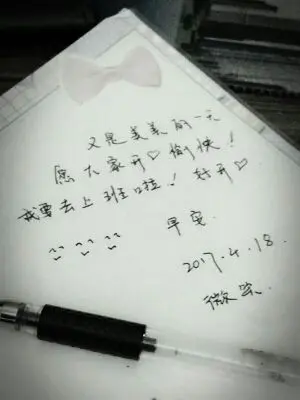 又是美美的一天
愿大家开♡愉快!
我要去上班啦! 好开♡
^_^ ^_^ ^_^
早安.
2017.4.18.
微笑.